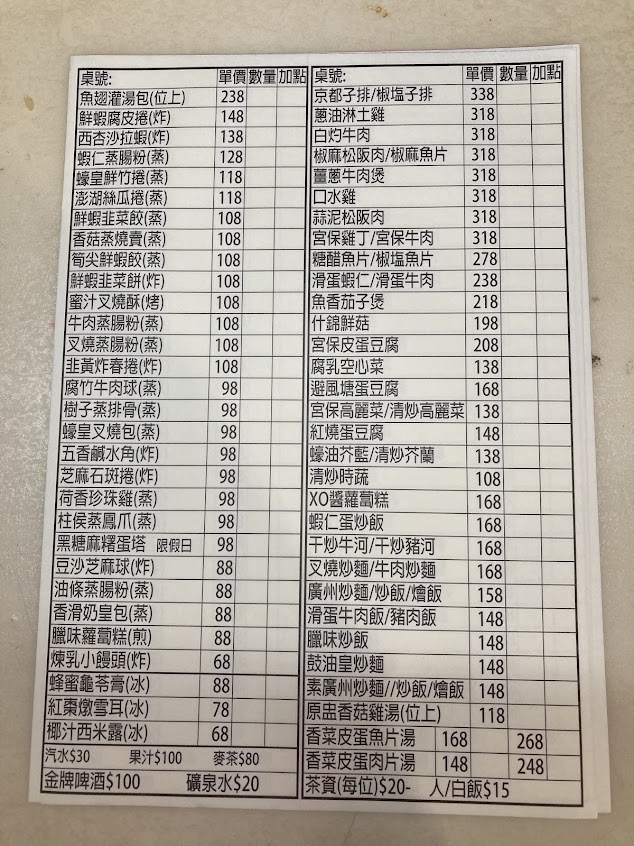 桌號: 單價 數量 加點
魚翅灌湯包(位上) 238
鮮蝦腐皮捲(炸) 148
西杏沙拉蝦(炸) 138
蝦仁蒸腸粉(蒸) 128
蠔皇鮮竹捲(蒸) 118
澎湖絲瓜捲(蒸) 118
鮮蝦韭菜餃(蒸) 108
香菇蒸燒賣(蒸) 108
筍尖鮮蝦餃(蒸) 108
鮮蝦韭菜餅(炸) 108
蜜汁叉燒酥(烤) 108
牛肉蒸腸粉(蒸) 108
叉燒蒸腸粉(蒸) 108
韭黃炸春捲(炸) 108
腐竹牛肉球(蒸) 98
樹子蒸排骨(蒸) 98
蠔皇叉燒包(蒸) 98
五香鹹水角(炸) 98
芝麻石斑捲(炸) 98
荷香珍珠雞(蒸) 98
柱侯蒸鳳爪(蒸) 98
黑糖麻糬蛋塔 限假日 98
豆沙芝麻球(炸) 88
油條蒸腸粉(蒸) 88
香滑奶皇包(蒸) 88
臘味蘿蔔糕(煎) 88
煉乳小饅頭(炸) 68
蜂蜜龜苓膏(冰) 88
紅棗燉雪耳(冰) 78
椰汁西米露(冰) 68
汽水$30 果汁$100 麥茶$80
金牌啤酒$100 礦泉水$20
桌號: 單價 數量 加點
京都子排/椒塩子排 338
蔥油淋土雞 318
白灼牛肉 318
椒麻松阪肉/椒麻魚片 318
薑蔥牛肉煲 318
口水雞 318
蒜泥松阪肉 318
宮保雞丁/宮保牛肉 318
糖醋魚片/椒塩魚片 278
滑蛋蝦仁/滑蛋牛肉 238
魚香茄子煲 218
什錦鮮菇 198
宮保皮蛋豆腐 208
腐乳空心菜 138
避風塘蛋豆腐 168
宮保高麗菜/清炒高麗菜 138
紅燒蛋豆腐 148
蠔油芥藍/清炒芥蘭 138
清炒時蔬 108
XO醬蘿蔔糕 168
蝦仁蛋炒飯 168
干炒牛河/干炒豬河 168
叉燒炒麵/牛肉炒麵 168
廣州炒麵/炒飯/燴飯 158
滑蛋牛肉飯/豬肉飯 148
臘味炒飯 148
鼓油皇炒麵 148
素廣州炒麵//炒飯/燴飯 148
原盅香菇雞湯(位上) 118
香菜皮蛋魚片湯 168 268
香菜皮蛋肉片湯 148 248
茶資(每位)$20- 人/白飯$15